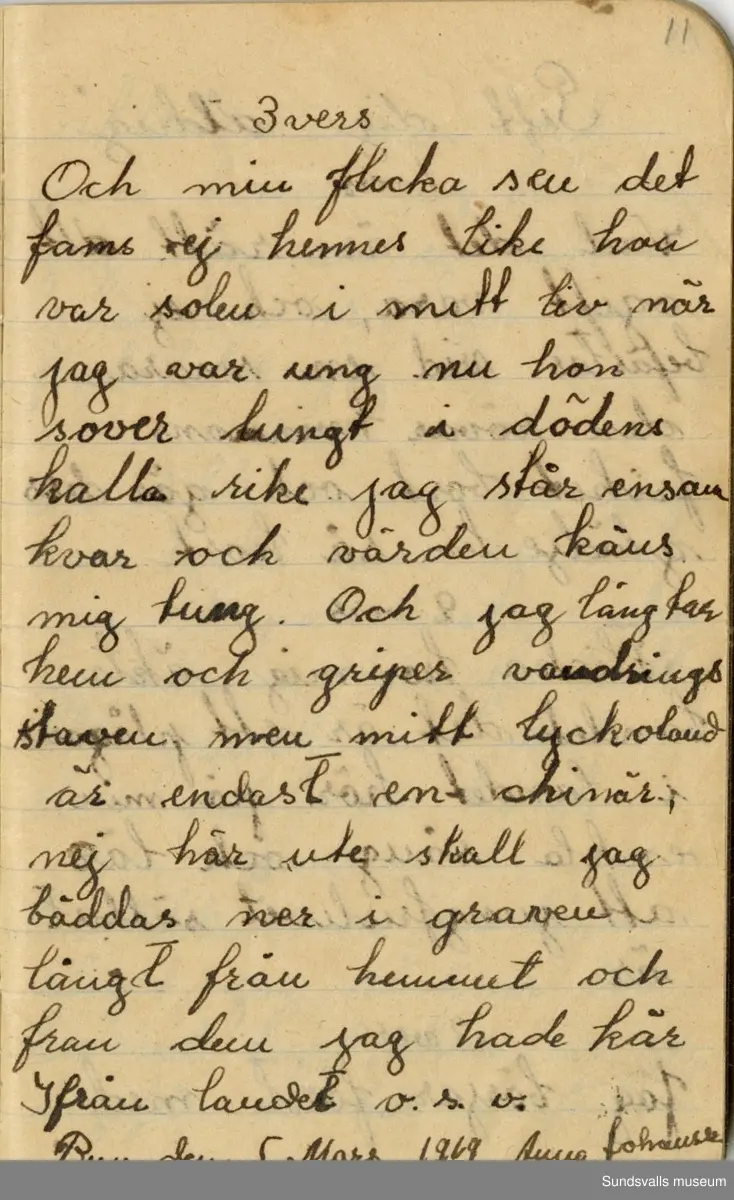 11
3 vers
Och min flicka sen det
fams ej hennes like hon
var solen i mitt liv när
jag var ung nu hon
sover tungt i dödens
kalla rike jag står ensam
kvar och värden käns
mig tung. Och jag längtar
hem och griper vandrings
staven, men mitt lyckoland
är endast en chimär,
nej här ute skall jag
bäddas ner i graven
långt från hemmet och
fran dem jag hade kär
Ifrån landet o. s. v.
den 5 Mars 1969 Anna Johansson
Sundsvalls museum